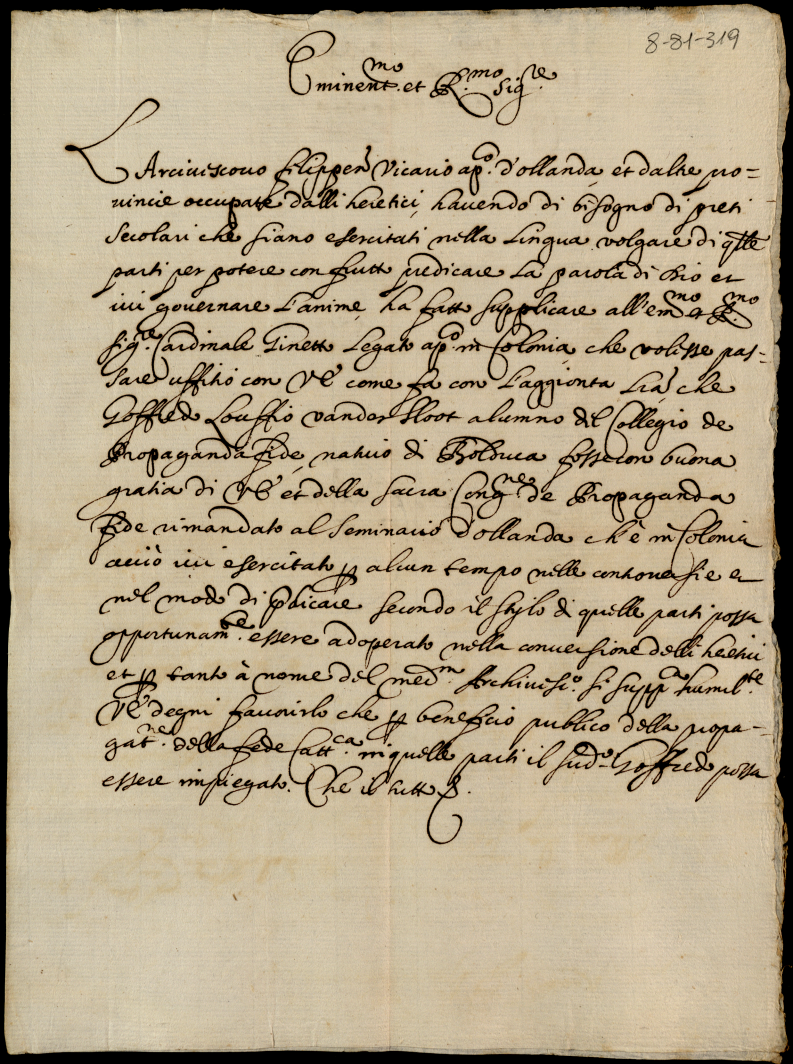 8-81-319
Eminent.mo et R.mo Sig.re
L'Arcivescovo Filippen Vicario ap.o d'ollanda et d'altre pro=
vincie occupate dalli heretici, havendo di bisogno di preti
secolari che siano esercitati nella Lingua volgare di q.lle
parti per potere con frutto predicare La parola di Dio et
ivi governare L'anime, ha fatto supplicare all'em.mo et R.mo
sig.re Cardinale Ginetto Legato ap.o in Colonia che volesse pas=
sare uffitio con VE come fa con L'aggionta che
Goffredo vander Sloot alumno del Collegio de
Propaganda fide, nativo di Bolduca fosse con buona
gratia di VE et della sacra Cong.ne de Propaganda
fide rimandato al Seminario d'ollanda ch'è in Colonia
acciò ivi esercitato p alcun tempo nelle controversie et
nel modo di p̄dicare secondo il stylo di quelle parti possa
opportunam.te essere adoperato nella conversione delli heretici
et p tanto à nome del med.m Archivesc.o si supp.ca humil.te
VE degni favorirlo che p beneficio publico della propa=
gat.ne della fede Catt.ca in quelle parti il sud.o Goffredo possa
essere impiegato. Che il tutto &.